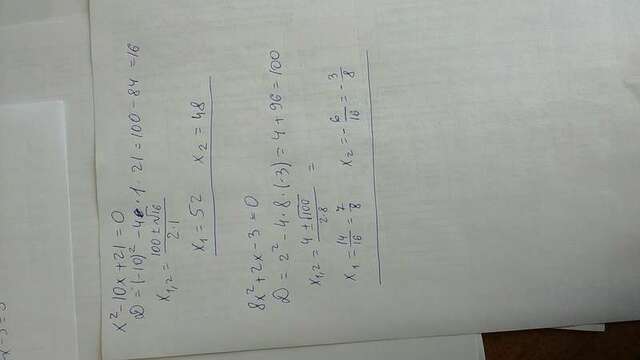 x² - 10x + 21 = 0
D = (-10)² - 4 · 1 · 21 = 100 - 84 = 16
x₁,₂ = (100 ± √16) / (2·1)
x₁ = 52   x₂ = 48
8x² + 2x - 3 = 0
D = 2² - 4 · 8 · (-3) = 4 + 96 = 100
x₁,₂ = (4 ± √100) / (2·8) =
x₁ = 14/16 = 7/8   x₂ = - 6/16 = - 3/8